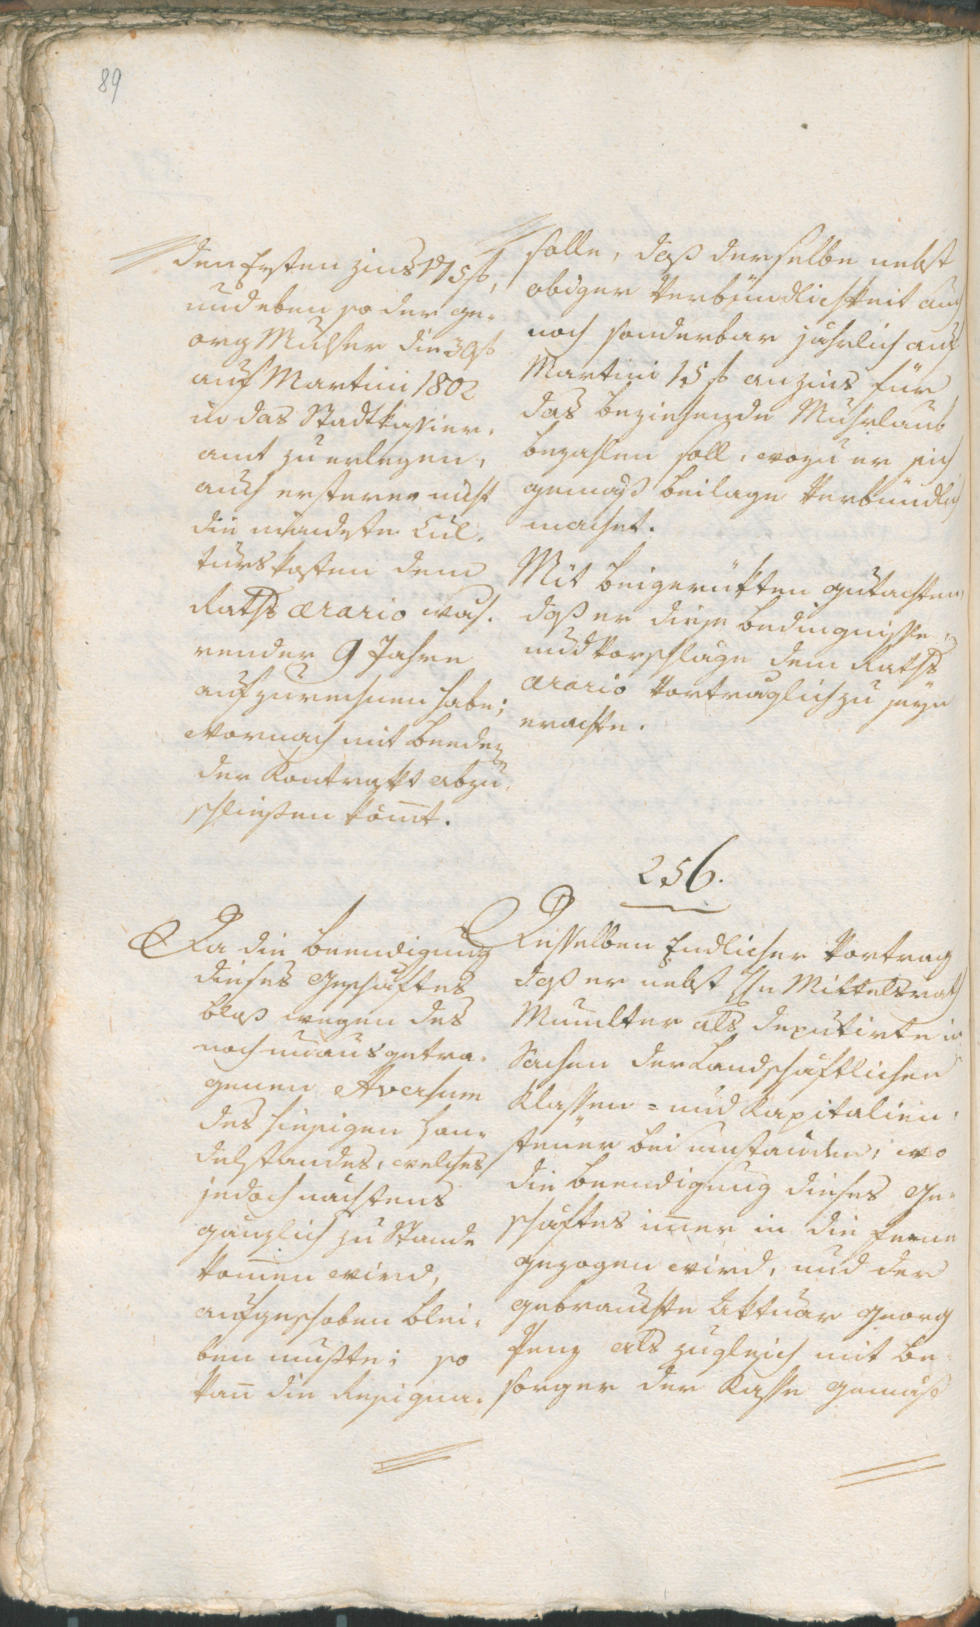 89
den Ersten Zins 175 f,
und eben so der Ge-
org Muhser die 30 f
auf Martini 1802
in das Stadtkassier-
amt zu erlegen,
auch ersterer nicht
die mindeste Cul-
turskosten dem
Raths ærario wäh-
render 9 Jahre
aufzurechnen habe;
Wornach mit beeden
der Kontrakt abzu-
schließen kömt.
solle, daß derselbe nebst
obiger Verbündlichkeit auch
noch sonderbar jährlich auf
Martini 15 f an Zins für
das beziehende Muhrlaub
bezahlen soll, wozu er sich
gemäß Beilage Verbündlich
machet.
Mit beigerükten Gutachten,
daß er diese Bedingnisse,
und Vorschläge dem Raths
ærario Vorträglich zu seyn
erachte.
256.
Da die Beendigung
dieses Geschäftes
blos wegen des
noch unausgetra-
genen Aversum
des hiesigen Han-
delsstandes, welches
jedoch nächstens
gänzlich zu Stande
komen wird,
aufgeschoben blei-
ben mußte; so
kan die Resigna-
Desselben Endlicher Vortrag
daß er nebst Hn Mittelsrath
Muellter als deputirte in
Sachen der Landschäftlichen
Klassen- und Kapitalien-
steuer bei umständen, wo
die Beendigung dieses Ge-
schäftes imer in die Ferne
gezogen wird, und der
gebrauchte Aktuar Georg
Penz als zugleich mit be-
sorger der Kasse gemäß